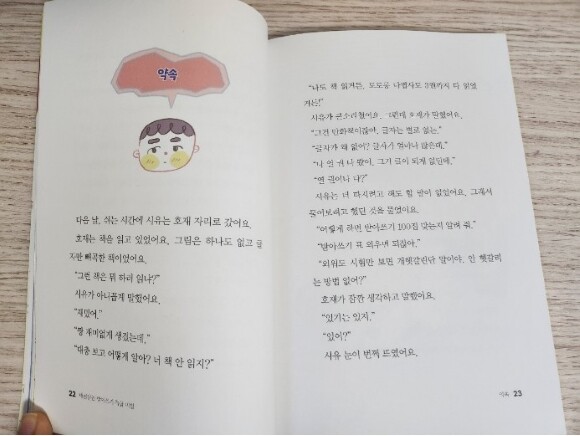 약속
다음 날, 쉬는 시간에 시유는 호재 자리로 갔어요.
호재는 책을 읽고 있었어요. 그림은 하나도 없고 글
자만 빼곡한 책이었어요.
"그런 책은 뭐 하러 읽냐?"
시유가 아니꼽게 말했어요.
"재밌어."
"짱 재미없게 생겼는데."
"대충 보고 어떻게 알아? 너 책 안 읽지?"
22
"나도 책 읽거든. 도로롱 나법사도 8권까지 다 읽었
거든!"
시유가 큰소리쳤어요. 그런데 호재가 말했어요.
"그건 만화책이잖아. 글자는 별로 없는."
"글자가 왜 없어? 글자가 얼마나 많은데."
"나 한 개 나 많아. 그기 많이 되게 없던데."
"몇 권이나 나?"
시유는 더 따지려고 해도 할 말이 없었어요. 그래서
물어보려고 했던 것을 물었어요.
"어떻게 하면 받아쓰기 100점 맞는지 알려 줘."
"받아쓰기 꼭 외우면 되잖아."
"외워도 시험만 보면 개헷갈린단 말이야. 안 헷갈리
는 방법 없어?"
호재가 잠깐 생각하고 말했어요.
"있기는 있지."
"있어?"
시유 눈이 번쩍 뜨였어요.
약속 23